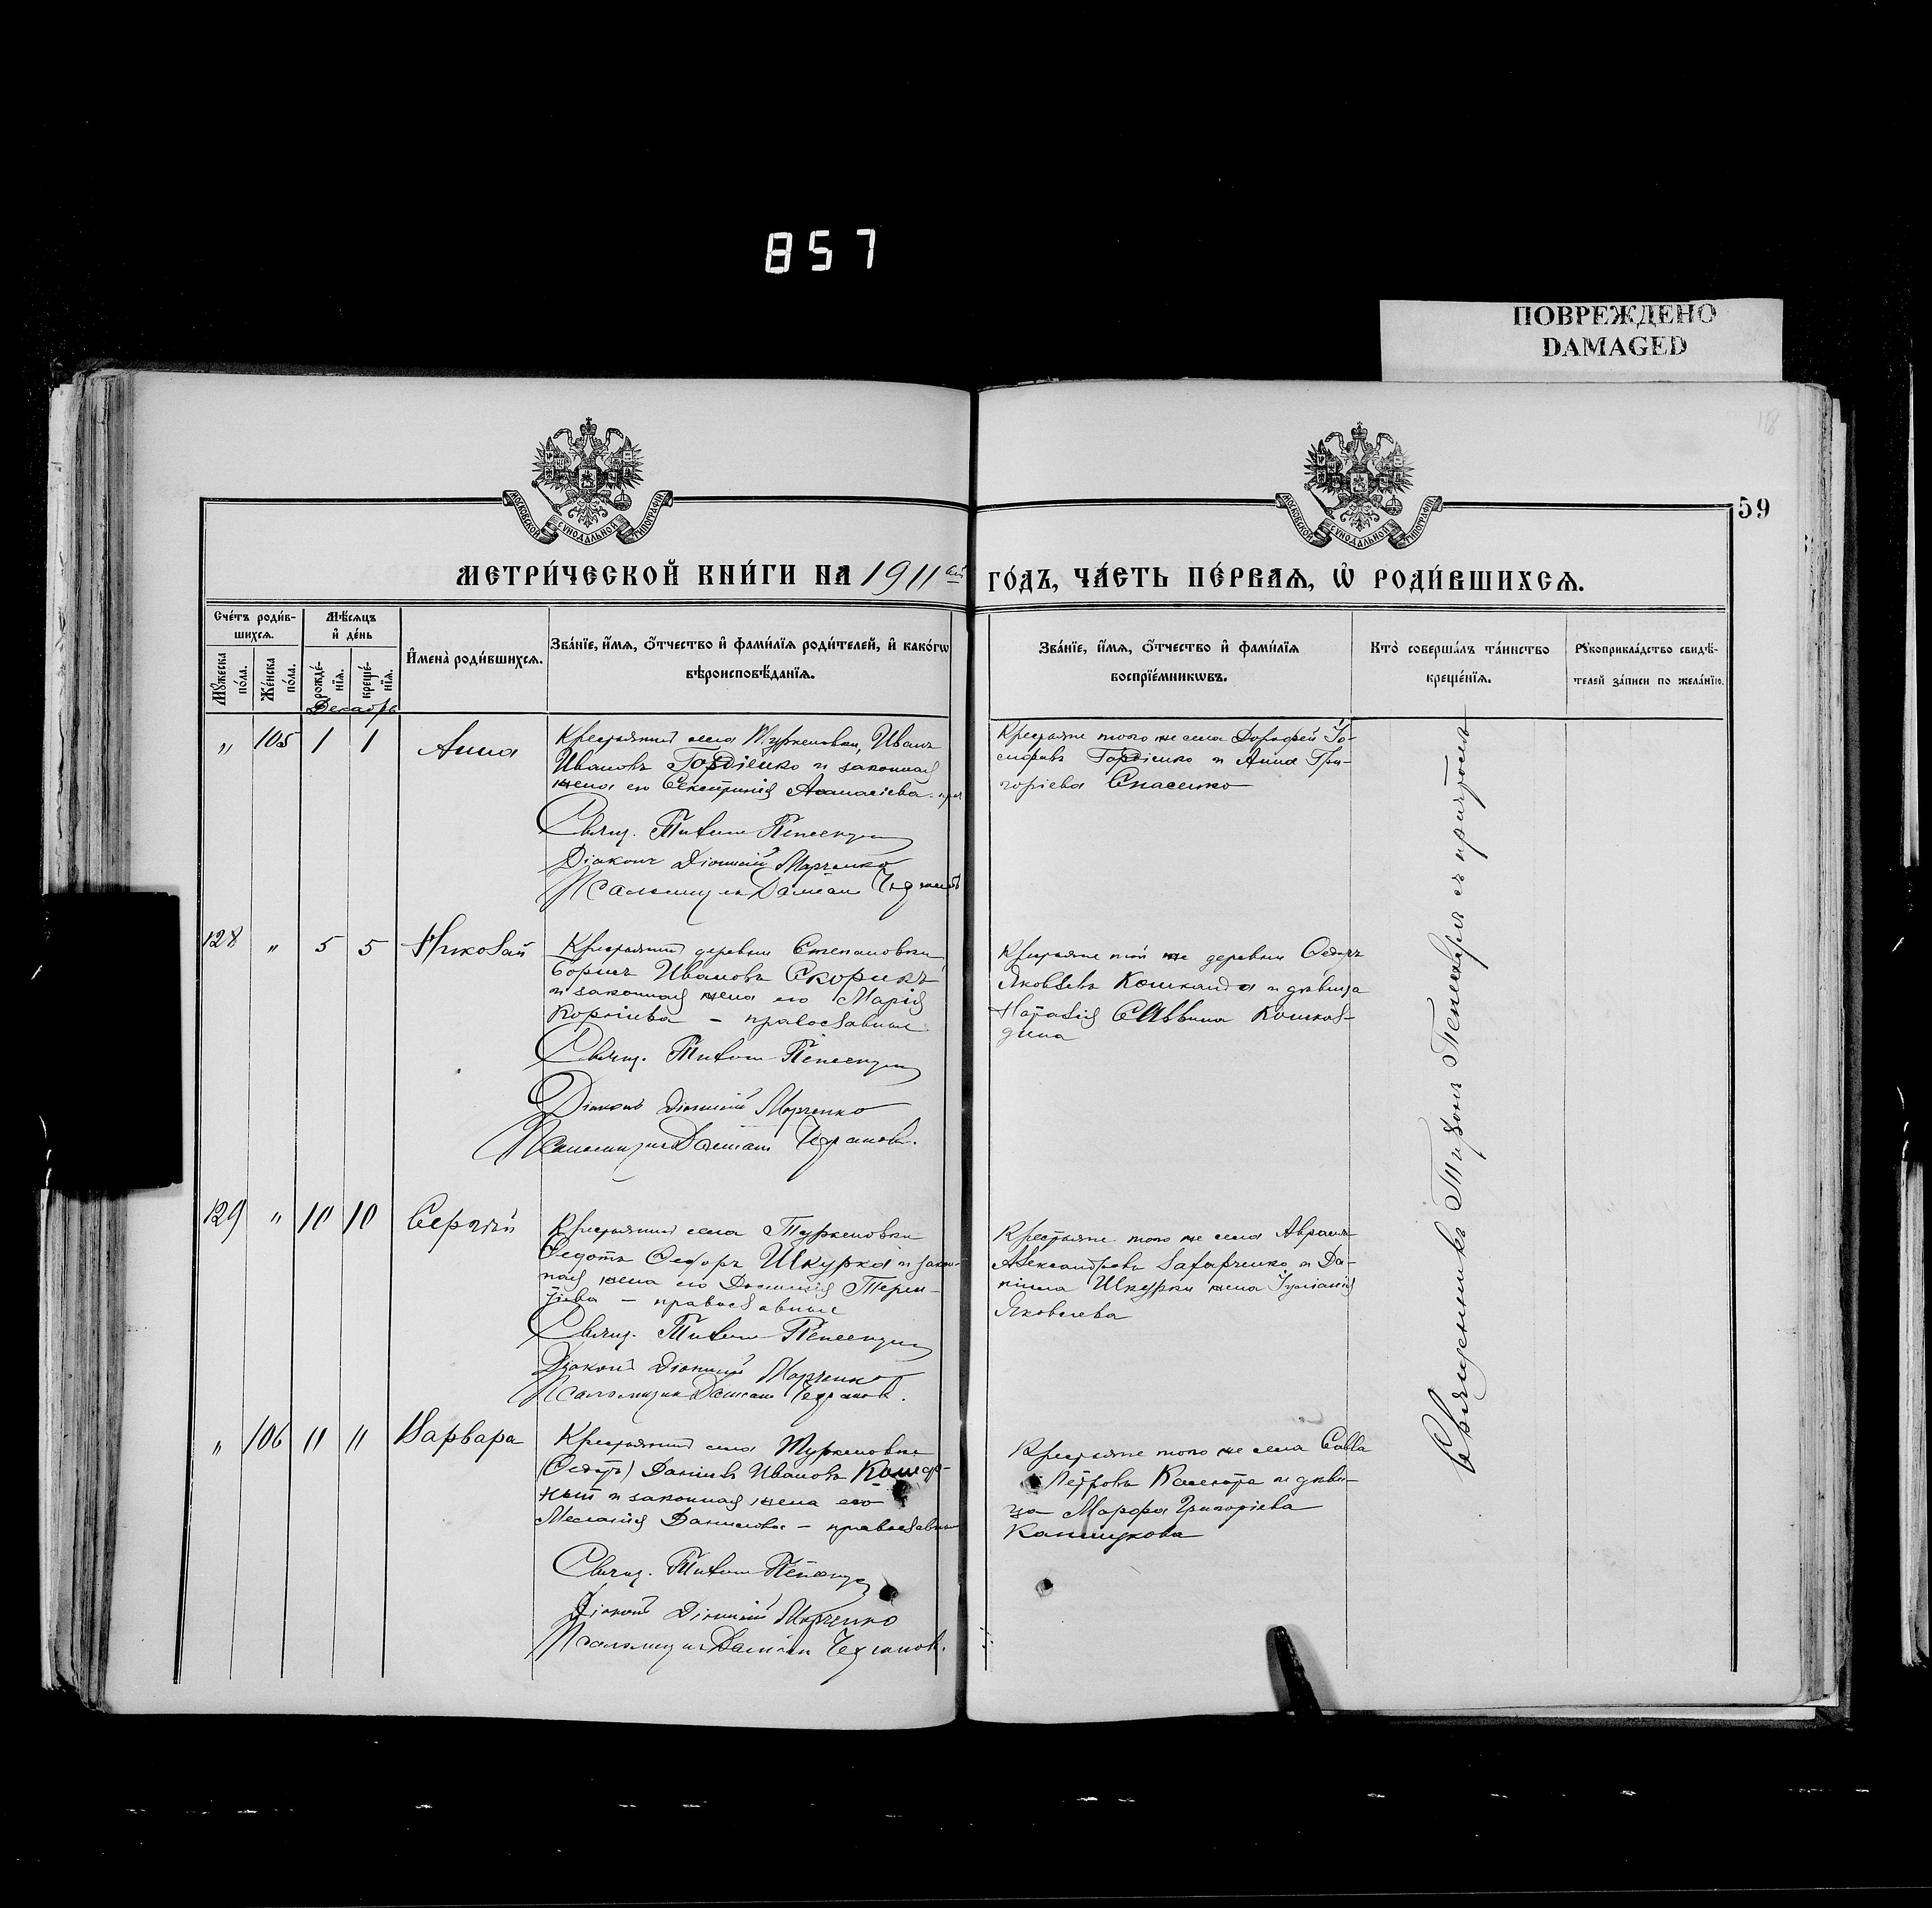 857
ПОВРЕЖДЕНО
DAMAGED
118
59
МОСКОВСКОЙ СѴНОДАЛЬНОЙ ТИПОГРАФІИ
МОСКОВСКОЙ СѴНОДАЛЬНОЙ ТИПОГРАФІИ
МЕТРИ́ЧЕСКОЙ КНИ́ГИ НА 1911 ый
ГО́ДЪ, ЧА́СТЬ ПЕ́РВАѦ, Ѡ҆ РОДИ́ВШИХСѦ.
Сче́тъ роди́в-
шихсѧ.
Мꙋ́жеска по́ла.
Же́нска по́ла.
Мѣ́сѧцъ
и҆ де́нь
рожде́-
нїѧ.
креще́-
нїѧ.
И҆мена̀ роди́вшихсѧ.
Зва́нїе, и҆́мѧ, ѻ҆́тчество и҆ фами́лїѧ роди́телей, и҆ како́гѡ
вѣроисповѣ́данїѧ.
Зва́нїе, и҆́мѧ, ѻ҆́тчество и҆ фами́лїѧ
воспрїе́мникѡвъ.
Кто̀ соверша́лъ та́инство
креще́нїѧ.
Рꙋкоприкла́дство свидѣ́-
телей за́писи по жела́нїю.
Декабрь
" 105 1 1 Анна
Крестьянинъ села Туркеновки, Иванъ
Ивановъ Гордіенко и законная
жена его Екатерина Аѳанасіева
Свящ. Тихонъ
Діаконъ Діонисій Марченко
Псаломщикъ Даміанъ
Крестьяне того же села Дорофей
Гордіенко и Анна Гри-
горіева Спасенко
128 " 5 5 Николай
Крестьянинъ деревни Степановки
Борисъ Ивановъ Скорикъ
и законная жена его Марія
Корніева – православные
Свящ. Тихонъ
Діаконъ Діонисій Марченко
Псаломщикъ Даміанъ
Крестьяне той же деревни Ѳедоръ
Яковлевъ и дѣвица
Наталія Саввина
129 " 10 10 Сергѣй
Крестьянинъ села Туркеновки
Ѳедотъ Шкурка и закон-
ная жена его Терен-
тіева – православные
Свящ. Тихонъ
Діаконъ Діонисій Марченко
Псаломщикъ Даміанъ
Крестьяне того же села Авраамъ
Александровъ Захарченко и Да-
ніила Шкурки жена Іуліанія
Яковлева
" 106 11 11 Варвара
Крестьянинъ села Туркеновки
Даніилъ Ивановъ
и законная жена его
Меланія Данилова – православные
Свящ. Тихонъ
Діаконъ Діонисій Марченко
Псаломщикъ Даміанъ
Крестьяне того же села Савва
Петровъ и дѣви-
ца Марфа Григоріева
Священникъ Тихонъ съ причтомъ